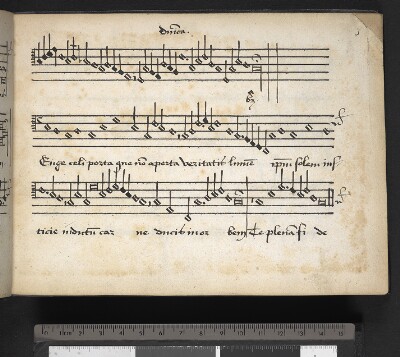 Euge celi porta que nō aperta veritatis lumē ipsū solem ius
ticie indutū car ne ducis in or bem Te plenā fi de